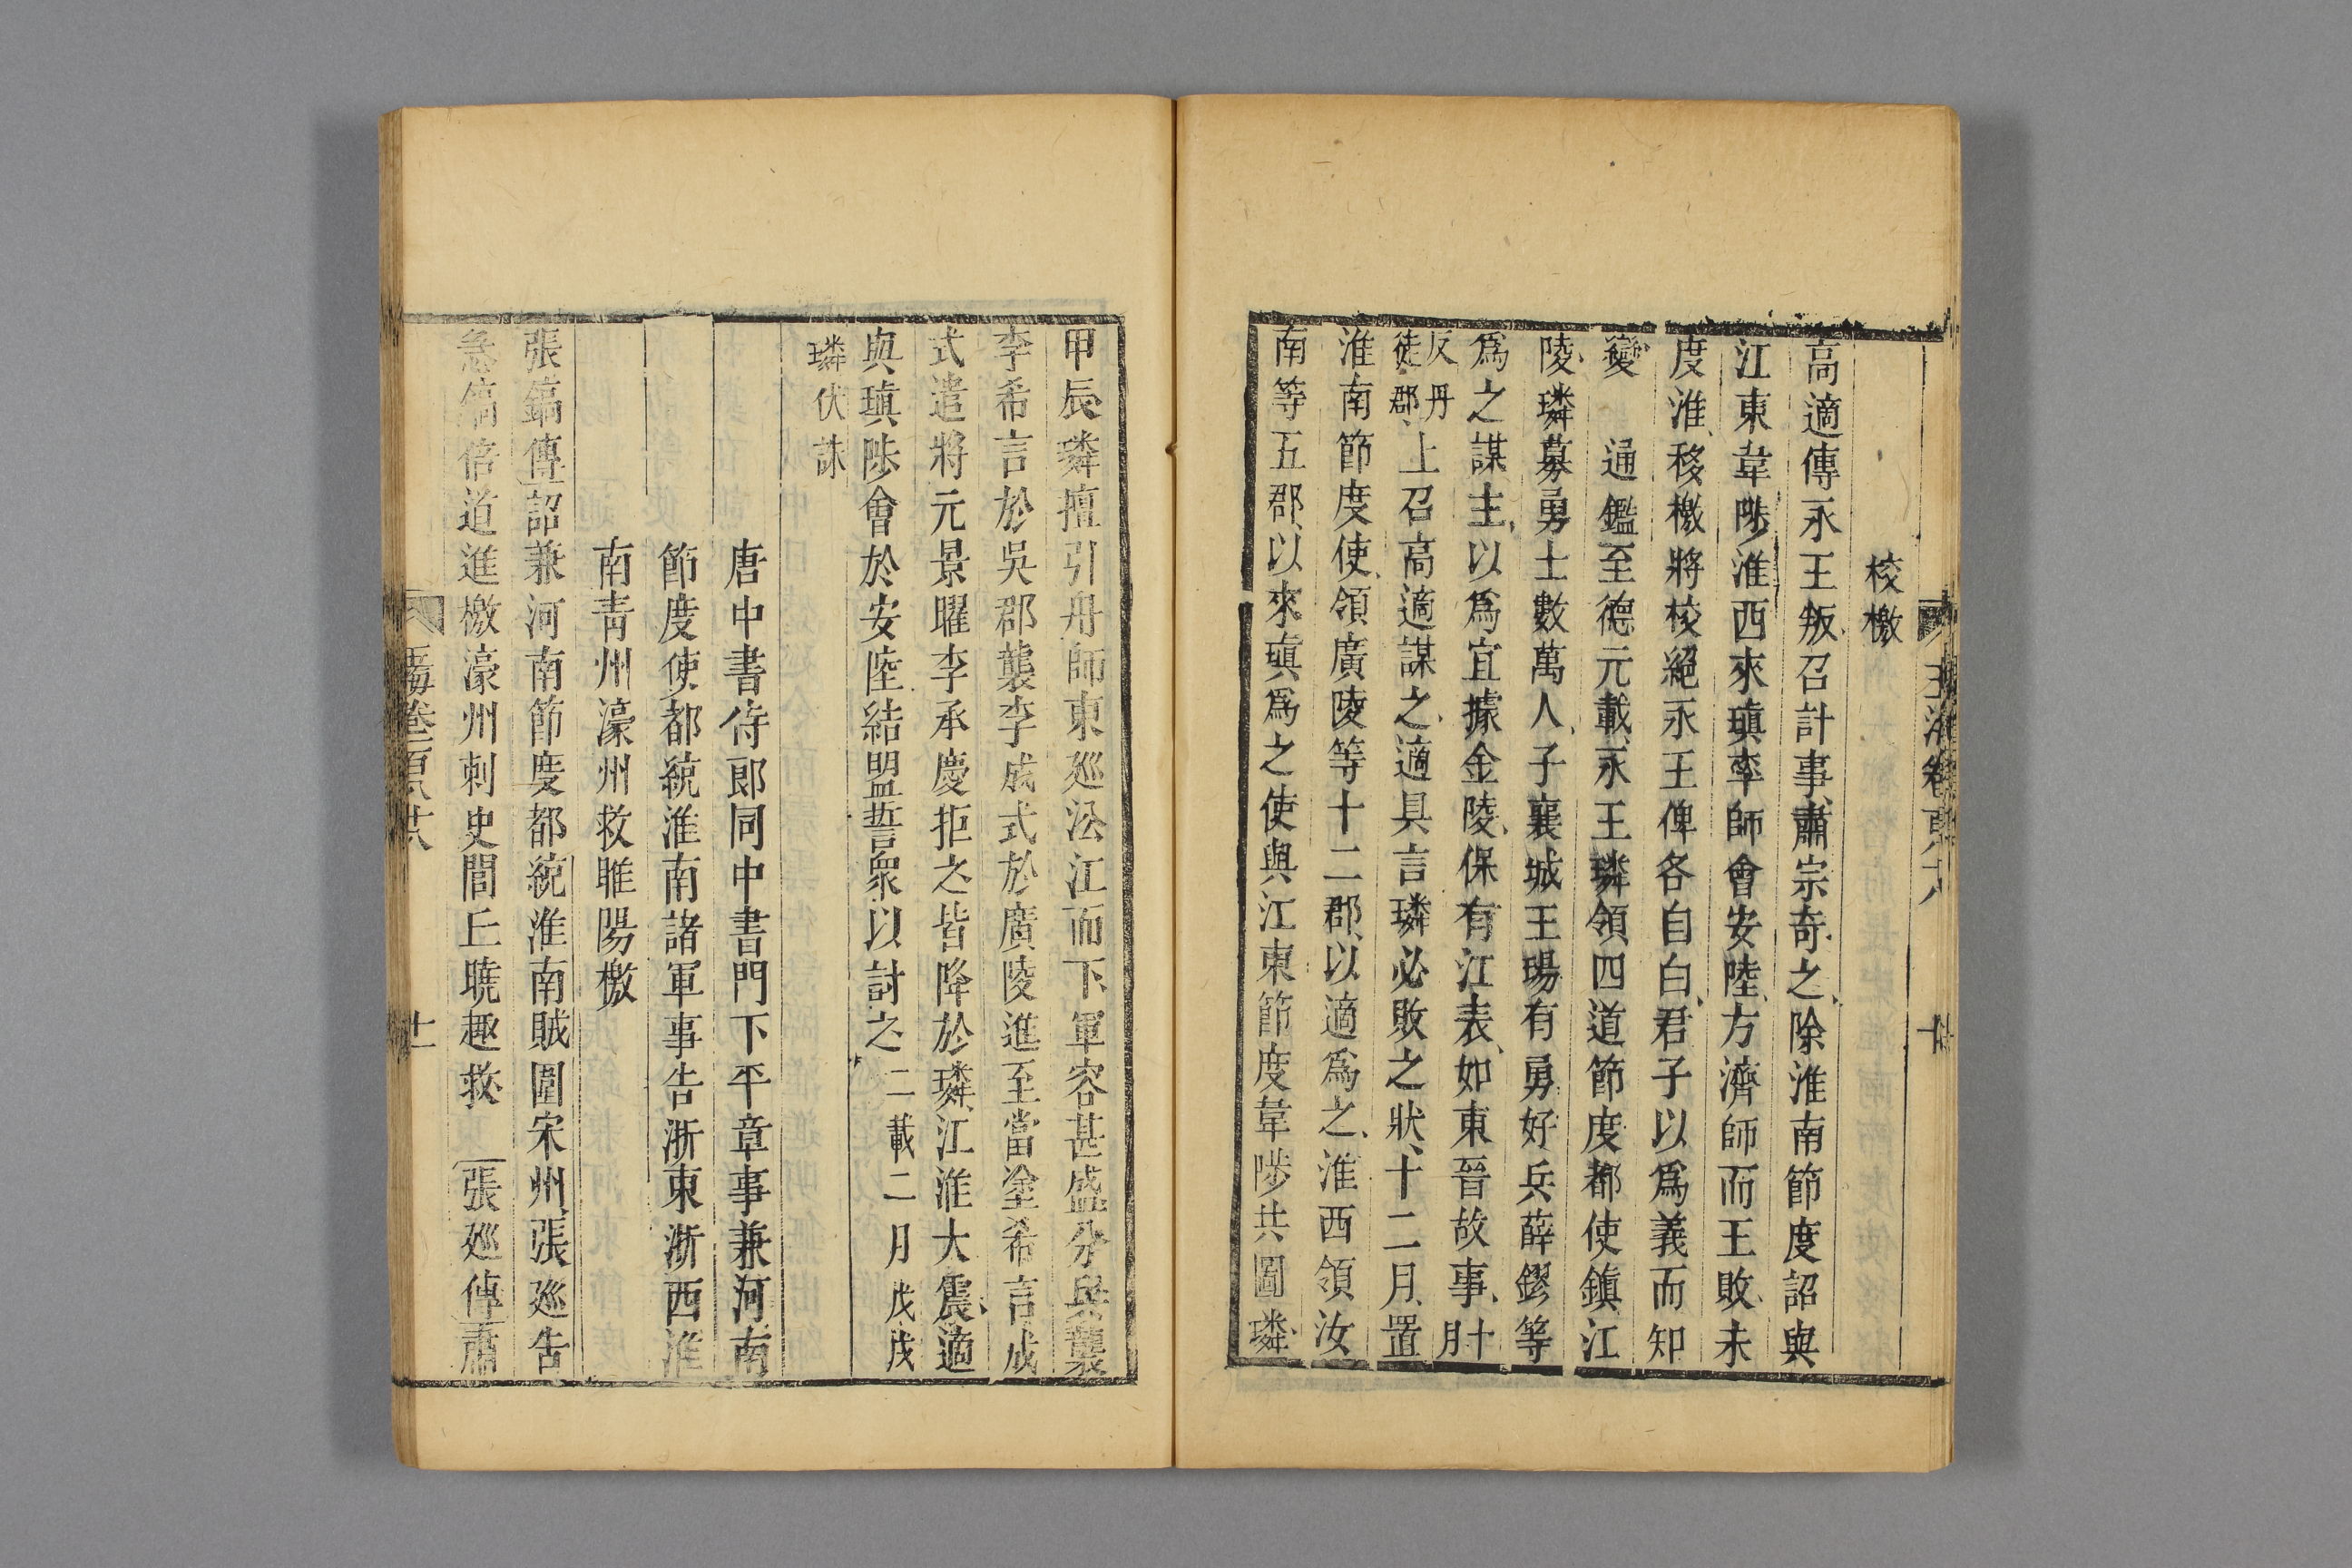 校檄
高適傳永王叛召計事肅宗奇之除淮南節度詔與
江東韋陟淮西來瑱率師會安陸方濟師而王敗未
度淮移檄將校絕永王俾各自白君子以爲義而知
變　通鑑至德元載永王璘領四道節度都使鎮江
陵璘募勇士數萬人子襄城王瑒有勇好兵薛鏐等
爲之謀主以爲宜據金陵保有江表如東晉故事十月
反丹徒郡上召高適謀之適具言璘必敗之狀十二月置
淮南節度使領廣陵等十二郡以適爲之淮西領汝
南等五郡以來瑱爲之使與江東節度韋陟共圖璘
甲辰璘擅引舟師東廵沿江而下軍容甚盛分兵襲
李希言於吳郡襲李成式於廣陵進至當塗希言成
式遣將元景曜李承慶拒之皆降於璘江淮大震適
與瑱陟會於安陸結盟誓衆以討之二載二月戊戌
璘伏誅
唐中書侍郎同中書門下平章事兼河南
節度使都統淮南諸軍事告浙東浙西淮
南青州濠州救睢陽檄
張鎬傳詔兼河南節度都統淮南賊圍宋州張廵告
急鎬倍道進檄濠州刺史閭丘曉趣救　張廵傳肅
玉海卷二百八
十一